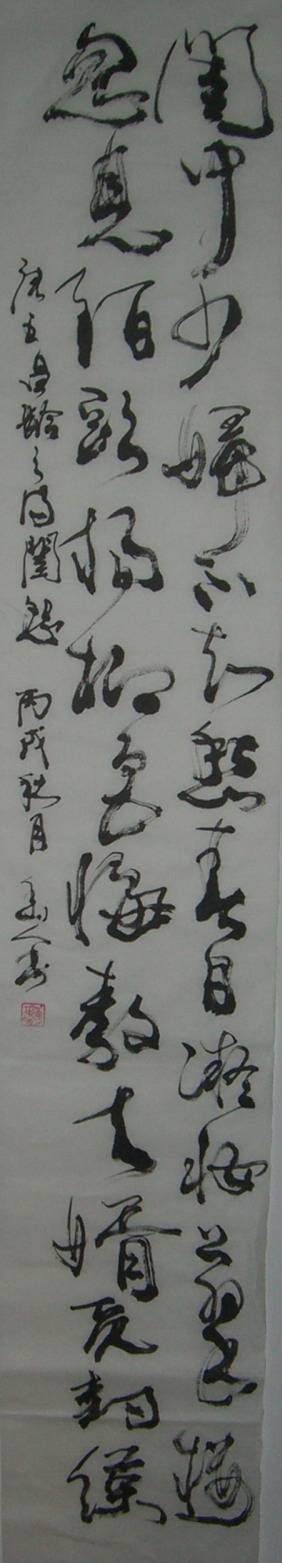 闺中少婦不知愁春日凝妝上翠楼
忽見陌頭楊柳色悔教夫婿覓封侯
唐王昌龄之詩閨怨 丙戌秋月